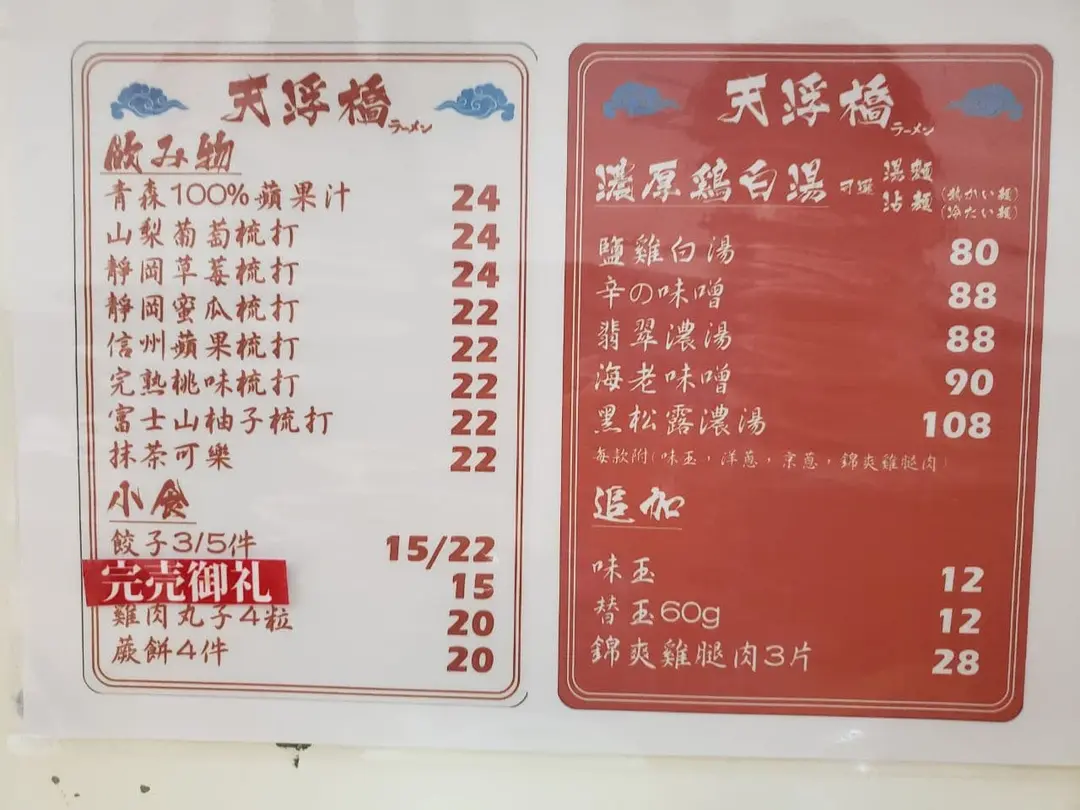 天浮橋
ラーメン
飲み物
青森100%蘋果汁 24
山梨葡萄梳打 24
靜岡草莓梳打 24
靜岡蜜瓜梳打 22
信州蘋果梳打 22
完熟桃味梳打 22
富士山柚子梳打 22
抹茶可樂 22
小食
餃子3/5件 15/22
完売御礼 15
雞肉丸子4粒 20
蕨餅4件 20
天浮橋
ラーメン
濃厚鶏白湯 可選 湯麵
沾麵 (熱かい麺)
(冷たい麺)
鹽雞白湯 80
辛の味噌 88
翡翠濃湯 88
海老味噌 90
黑松露濃湯 108
每款附(味玉,洋蔥,京蔥,錦爽雞腿肉)
追加
味玉 12
替玉60g 12
錦爽雞腿肉3片 28